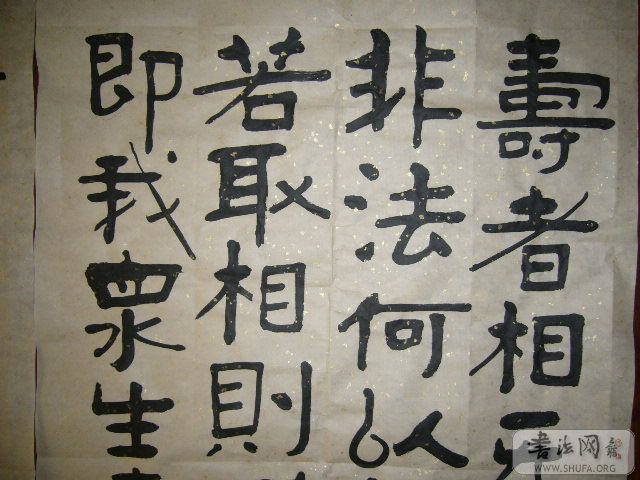 壽者相
非法何以
若取相則
即我衆生
書法网
WWW.SHUFA.ORG